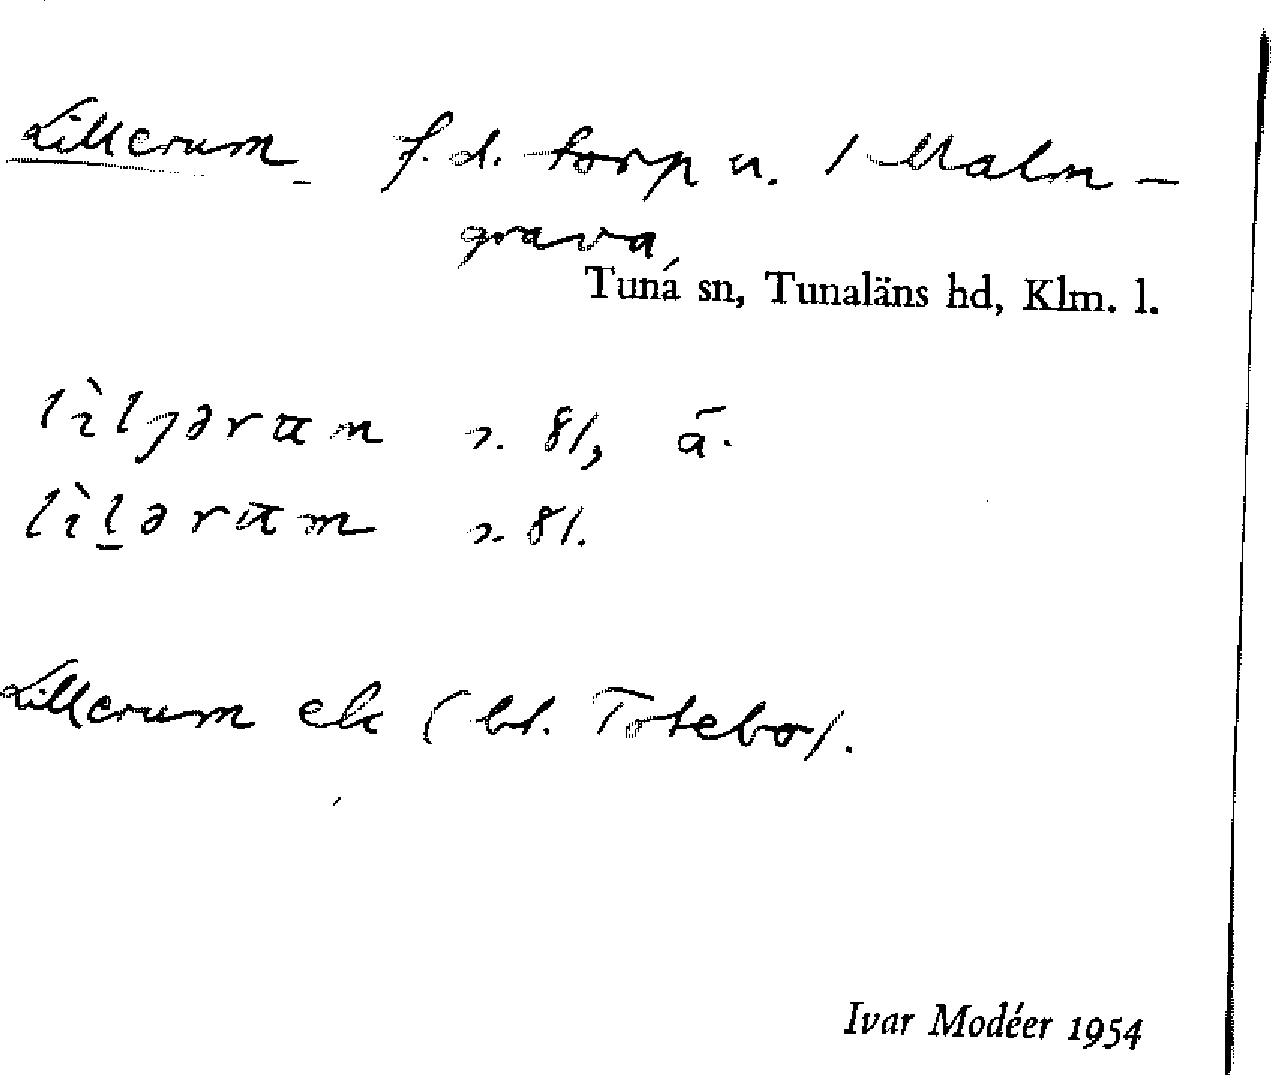 Lillerum f.d. torp u. / Malm-
grava,
Tuna sn, Tunaläns hd, Klm. l.
lìlJərum s. 81, ä.
lìlərum s. 81.
Lillerum ek (bl. Totebo).
Ivar Modéer 1954